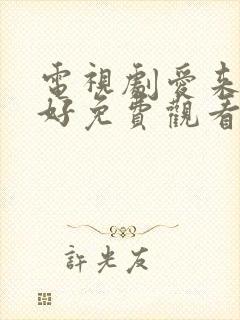 電視劇愛來
好免費觀看
許光友